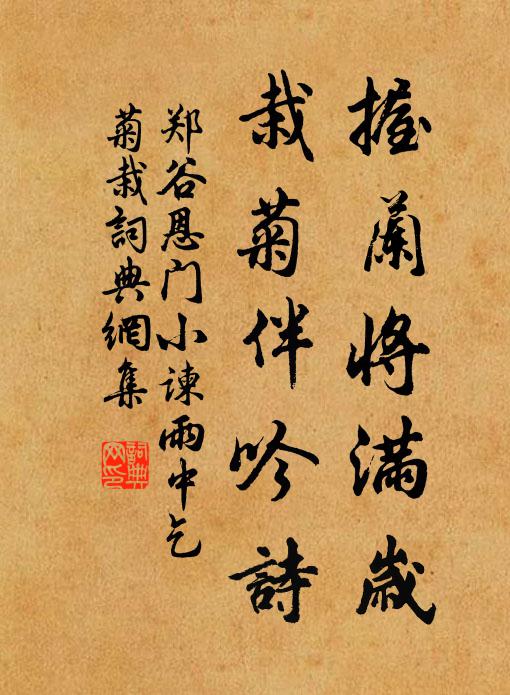 握蘭將滿歲
栽菊伴吟詩
郑谷恩门小諫雨中乞
菊栽詞典網集
詞典
网印